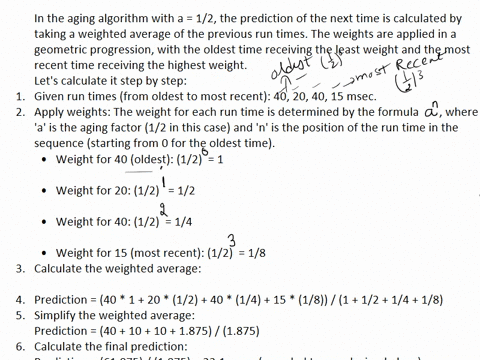 In the aging algorithm with a = 1/2, the prediction of the next time is calculated by
taking a weighted average of the previous run times. The weights are applied in a
geometric progression, with the oldest time receiving the least weight and the most
recent time receiving the highest weight.
oldest (1/2)⁰
most Recent
(1/2)³
Let's calculate it step by step:
1. Given run times (from oldest to most recent): 40, 20, 40, 15 msec.
2. Apply weights: The weight for each run time is determined by the formula aⁿ, where
'a' is the aging factor (1/2 in this case) and 'n' is the position of the run time in the
sequence (starting from 0 for the oldest time).
• Weight for 40 (oldest): (1/2)⁰ = 1
• Weight for 20: (1/2)¹ = 1/2
• Weight for 40: (1/2)² = 1/4
• Weight for 15 (most recent): (1/2)³ = 1/8
3. Calculate the weighted average:
4. Prediction = (40 * 1 + 20 * (1/2) + 40 * (1/4) + 15 * (1/8)) / (1 + 1/2 + 1/4 + 1/8)
5. Simplify the weighted average:
Prediction = (40 + 10 + 10 + 1.875) / (1.875)
6. Calculate the final prediction: